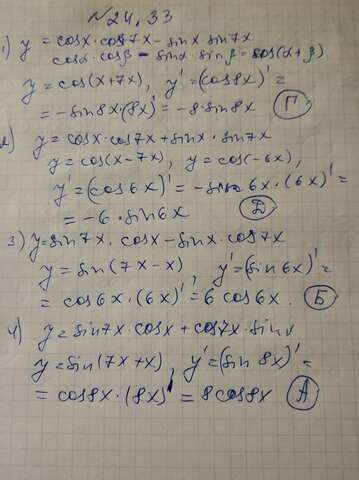 №24.33
1) y = cosx·cos7x – sinx sin7x
cosα·cosβ – sinα·sinβ = cos(α+β)
y = cos(x+7x), y' = (cos8x)' =
= –sin8x·(8x)' = –8·sin8x (П)
2) y = cosx·cos7x + sinx·sin7x
y = cos(x–7x), y = cos(–6x),
y' = (cos6x)' = –sin6x·(6x)' =
= –6·sin6x (Д)
3) y = sin7x·cosx – sinx·cos7x
y = sin(7x–x), y' = (sin6x)' =
= cos6x·(6x)' = 6cos6x. (Б)
4) y = sin7x·cosx + cos7x·sinx
y = sin(7x+x), y' = (sin8x)' =
= cos8x·(8x)' = 8cos8x (А)